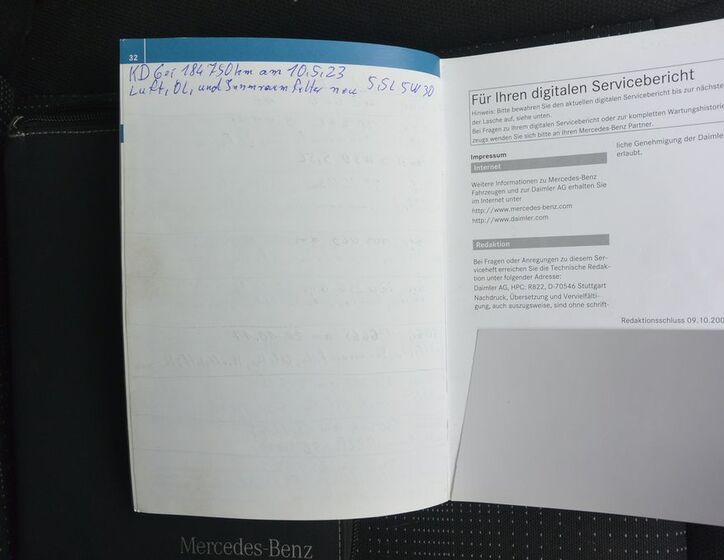 32
KD bei 184750 km am 10.5.23
Luft, Öl, und Innenraumfilter neu 5,5L 5W30
Für Ihren digitalen Servicebericht
Hinweis: Bitte bewahren Sie den aktuellen digitalen Servicebericht bis zur nächste
der Lasche auf, siehe unten.
Bei Fragen zu Ihrem digitalen Servicebericht oder zur kompletten Wartungshistorie
zeugs wenden Sie sich bitte an Ihren Mercedes-Benz Partner.
Impressum
Internet
Weitere Informationen zu Mercedes-Benz
Fahrzeugen und zur Daimler AG erhalten Sie
im Internet unter
http://www.mercedes-benz.com
http://www.daimler.com
Redaktion
Bei Fragen oder Anregungen zu diesem Ser-
viceheft erreichen Sie die Technische Redak-
tion unter folgender Adresse:
Daimler AG, HPC: R822, D-70546 Stuttgart
Nachdruck, Übersetzung und Vervielfälti-
gung, auch auszugsweise, sind ohne schrift-
liche Genehmigung der Daimle
erlaubt.
Redaktionsschluss 09.10.200
Mercedes-Benz